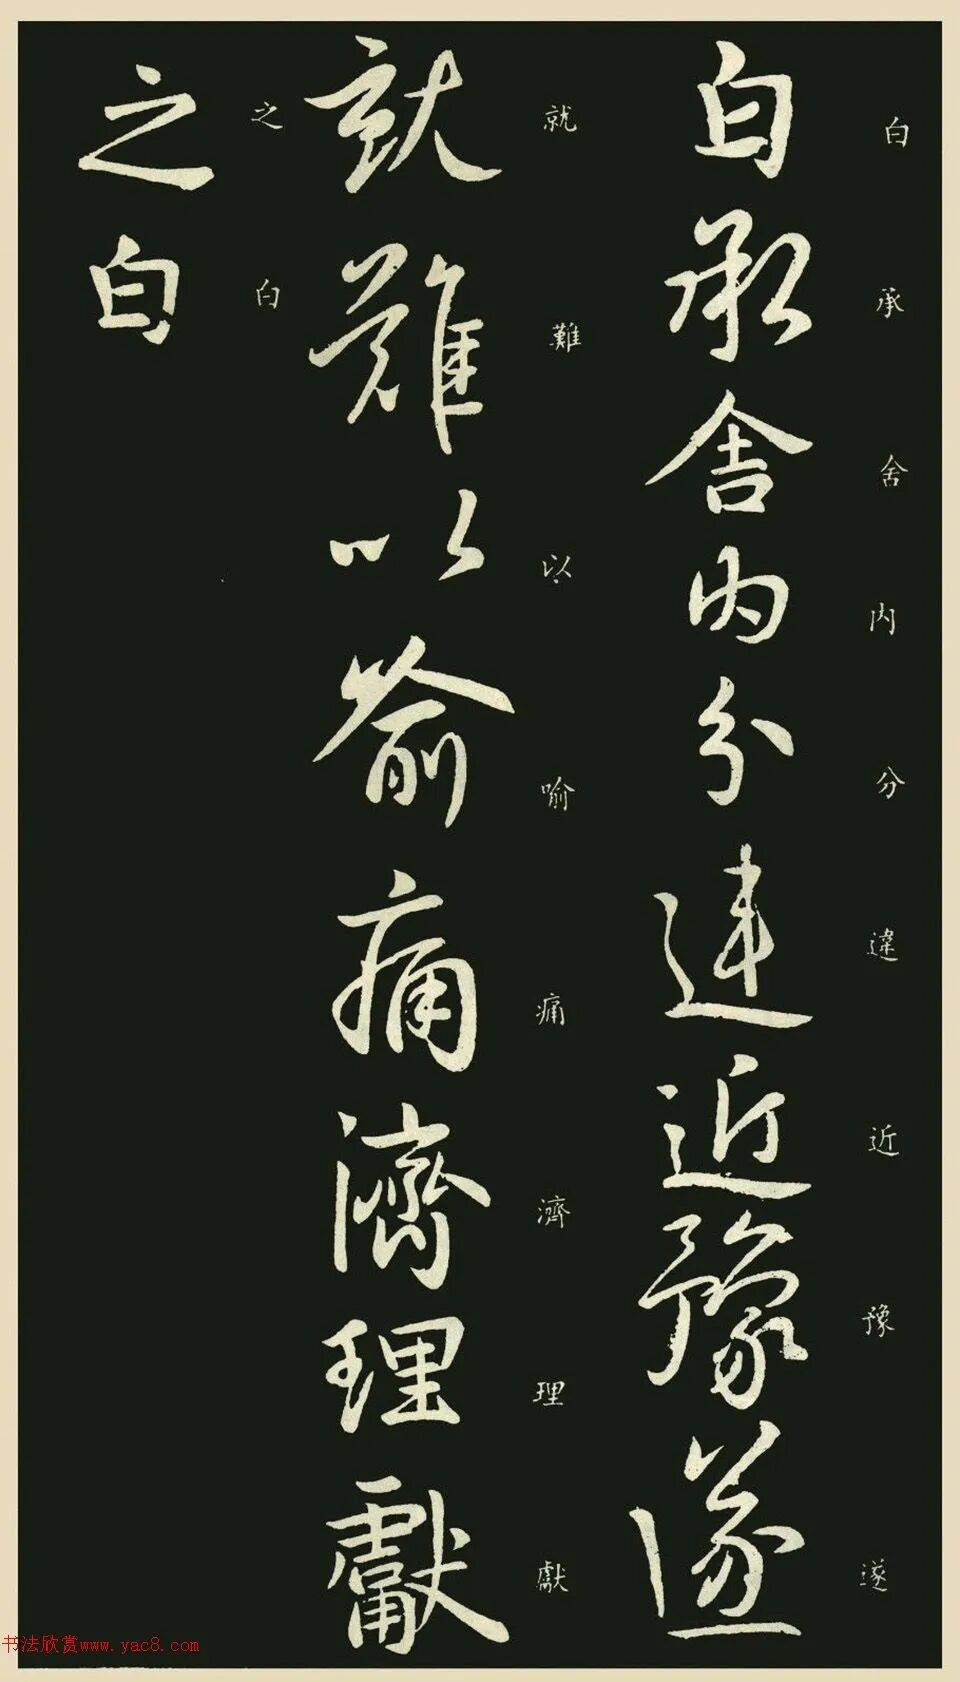 白承舍內分違近豫遂
白承舍内分違近豫遂
就難以喻痛濟理獻
就難以喻痛濟理獻
之白
之白
书法欣赏www.yac8.com